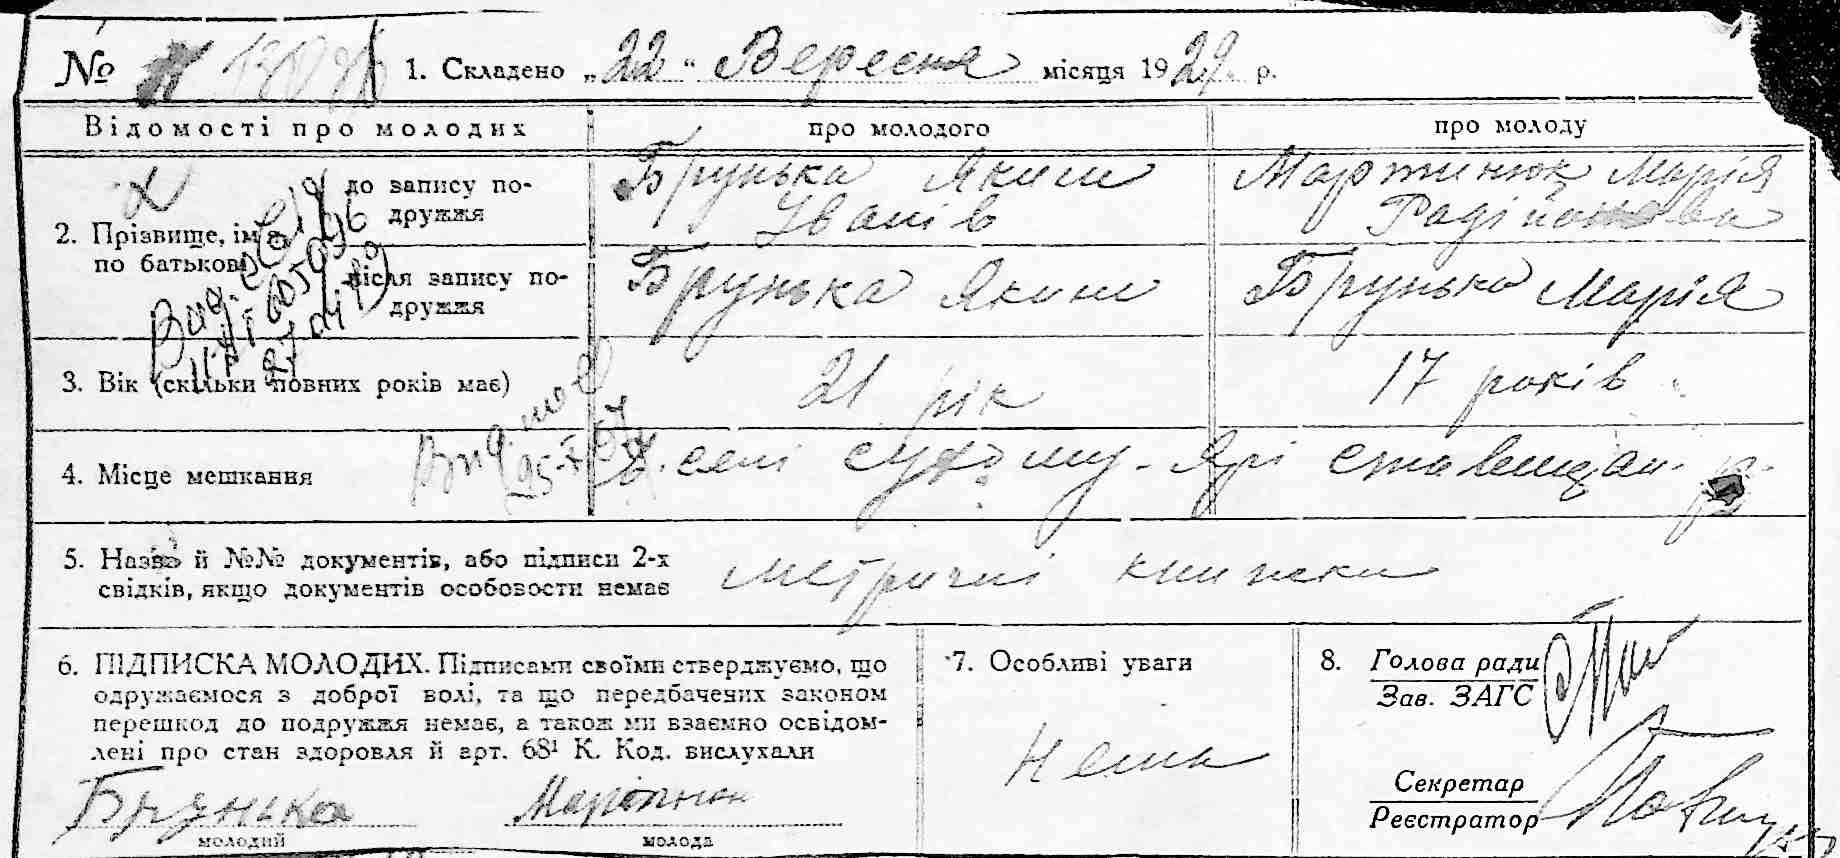 № 1. Складено „22“ Вересня місяця 1929 р.
Відомості про молодих про молодого про молоду
2. Прізвище, ім'я, по батькові
до запису по-
дружжя
Брунька Яким
Іванів
Мартинюк Марія
Радійонова
після запису по-
дружжя
Брунька Яким
Брунька Марія
3. Вік (скільки повних років має) 21 рік 17 років
4. Місце мешкання В. селі Сухому-Ярі Ставищан. р.
5. Назва й №№ документів, або підписи 2-х
свідків, якщо документів особовости немає
метричні книжки
6. ПІДПИСКА МОЛОДИХ. Підписами своїми стверджуємо, що
одружаємося з доброї волі, та що передбачених законом
перешкод до подружжя немає, а також ми взаємно освідом-
лені про стан здоровля й арт. 68¹ К. Код. вислухали
Брунька Мартинюк
молодий молода
7. Особливі уваги
Нема
8. Голова ради
Зав. ЗАГС
Секретар
Реєстратор